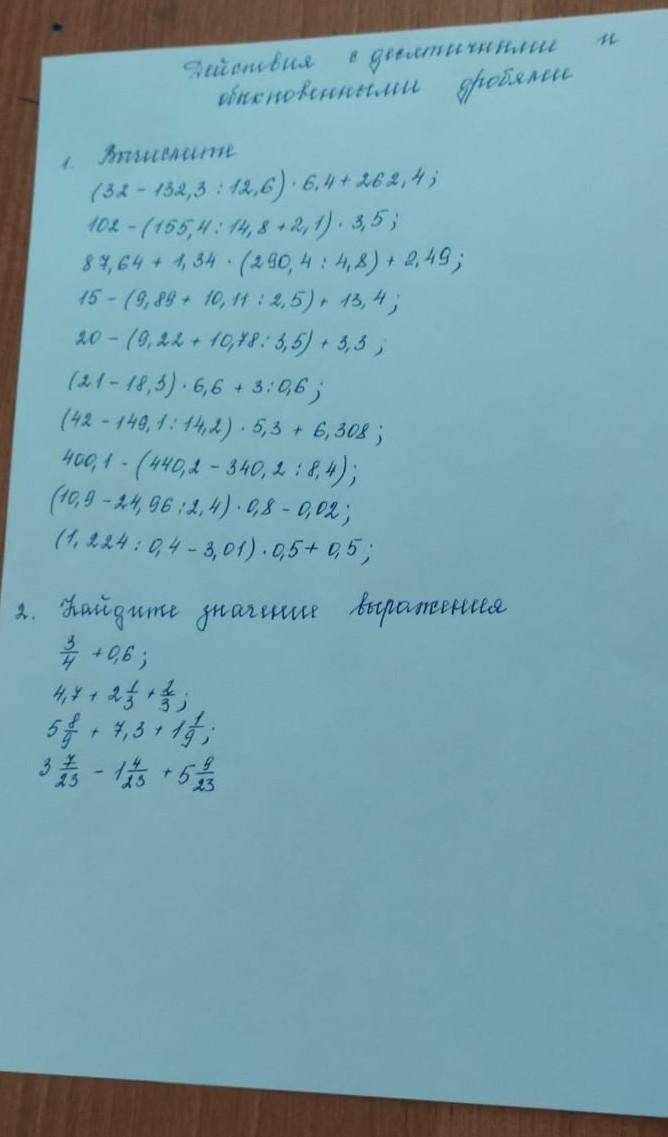 Действия с десятичными и
обыкновенными дробями
1. Вычислите
(32 - 132,3 : 12,6) · 6,4 + 262,4;
102 - (155,4 : 14,8 + 2,1) · 3,5;
87,64 + 1,34 · (290,4 : 4,8) + 2,49;
15 - (9,89 + 10,11 : 2,5) + 13,4;
20 - (9,22 + 10,78 : 3,5) + 3,3;
(21 - 18,3) · 6,6 + 3 : 0,6;
(42 - 149,1 : 14,2) · 5,3 + 6,308;
400,1 - (440,2 - 340,2 : 8,4);
(10,9 - 24,96 : 2,4) · 0,8 - 0,02;
(1,224 : 0,4 - 3,01) · 0,5 + 0,5;
2. Найдите значение выражения
3/4 + 0,6;
4,7 + 2 1/3 + 2/3;
5 8/9 + 7,3 + 1 1/9;
3 7/23 - 1 4/23 + 5 9/23